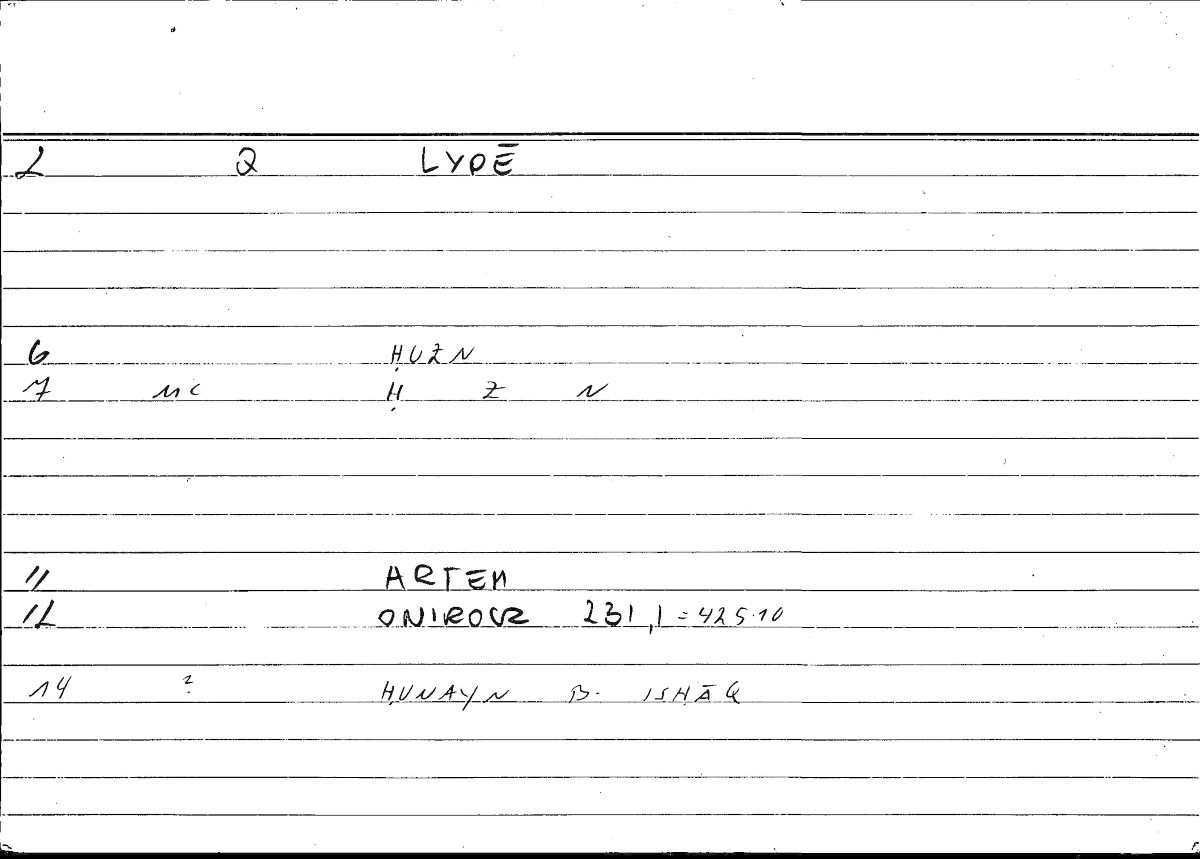 2 Q LYPĒ
6 ḤUZN
7 MC Ḥ Z N
11 ARTEM
12 ONIROCR 231,1 = 425.10
14 ? ḤUNAYN B. ISḤĀQ